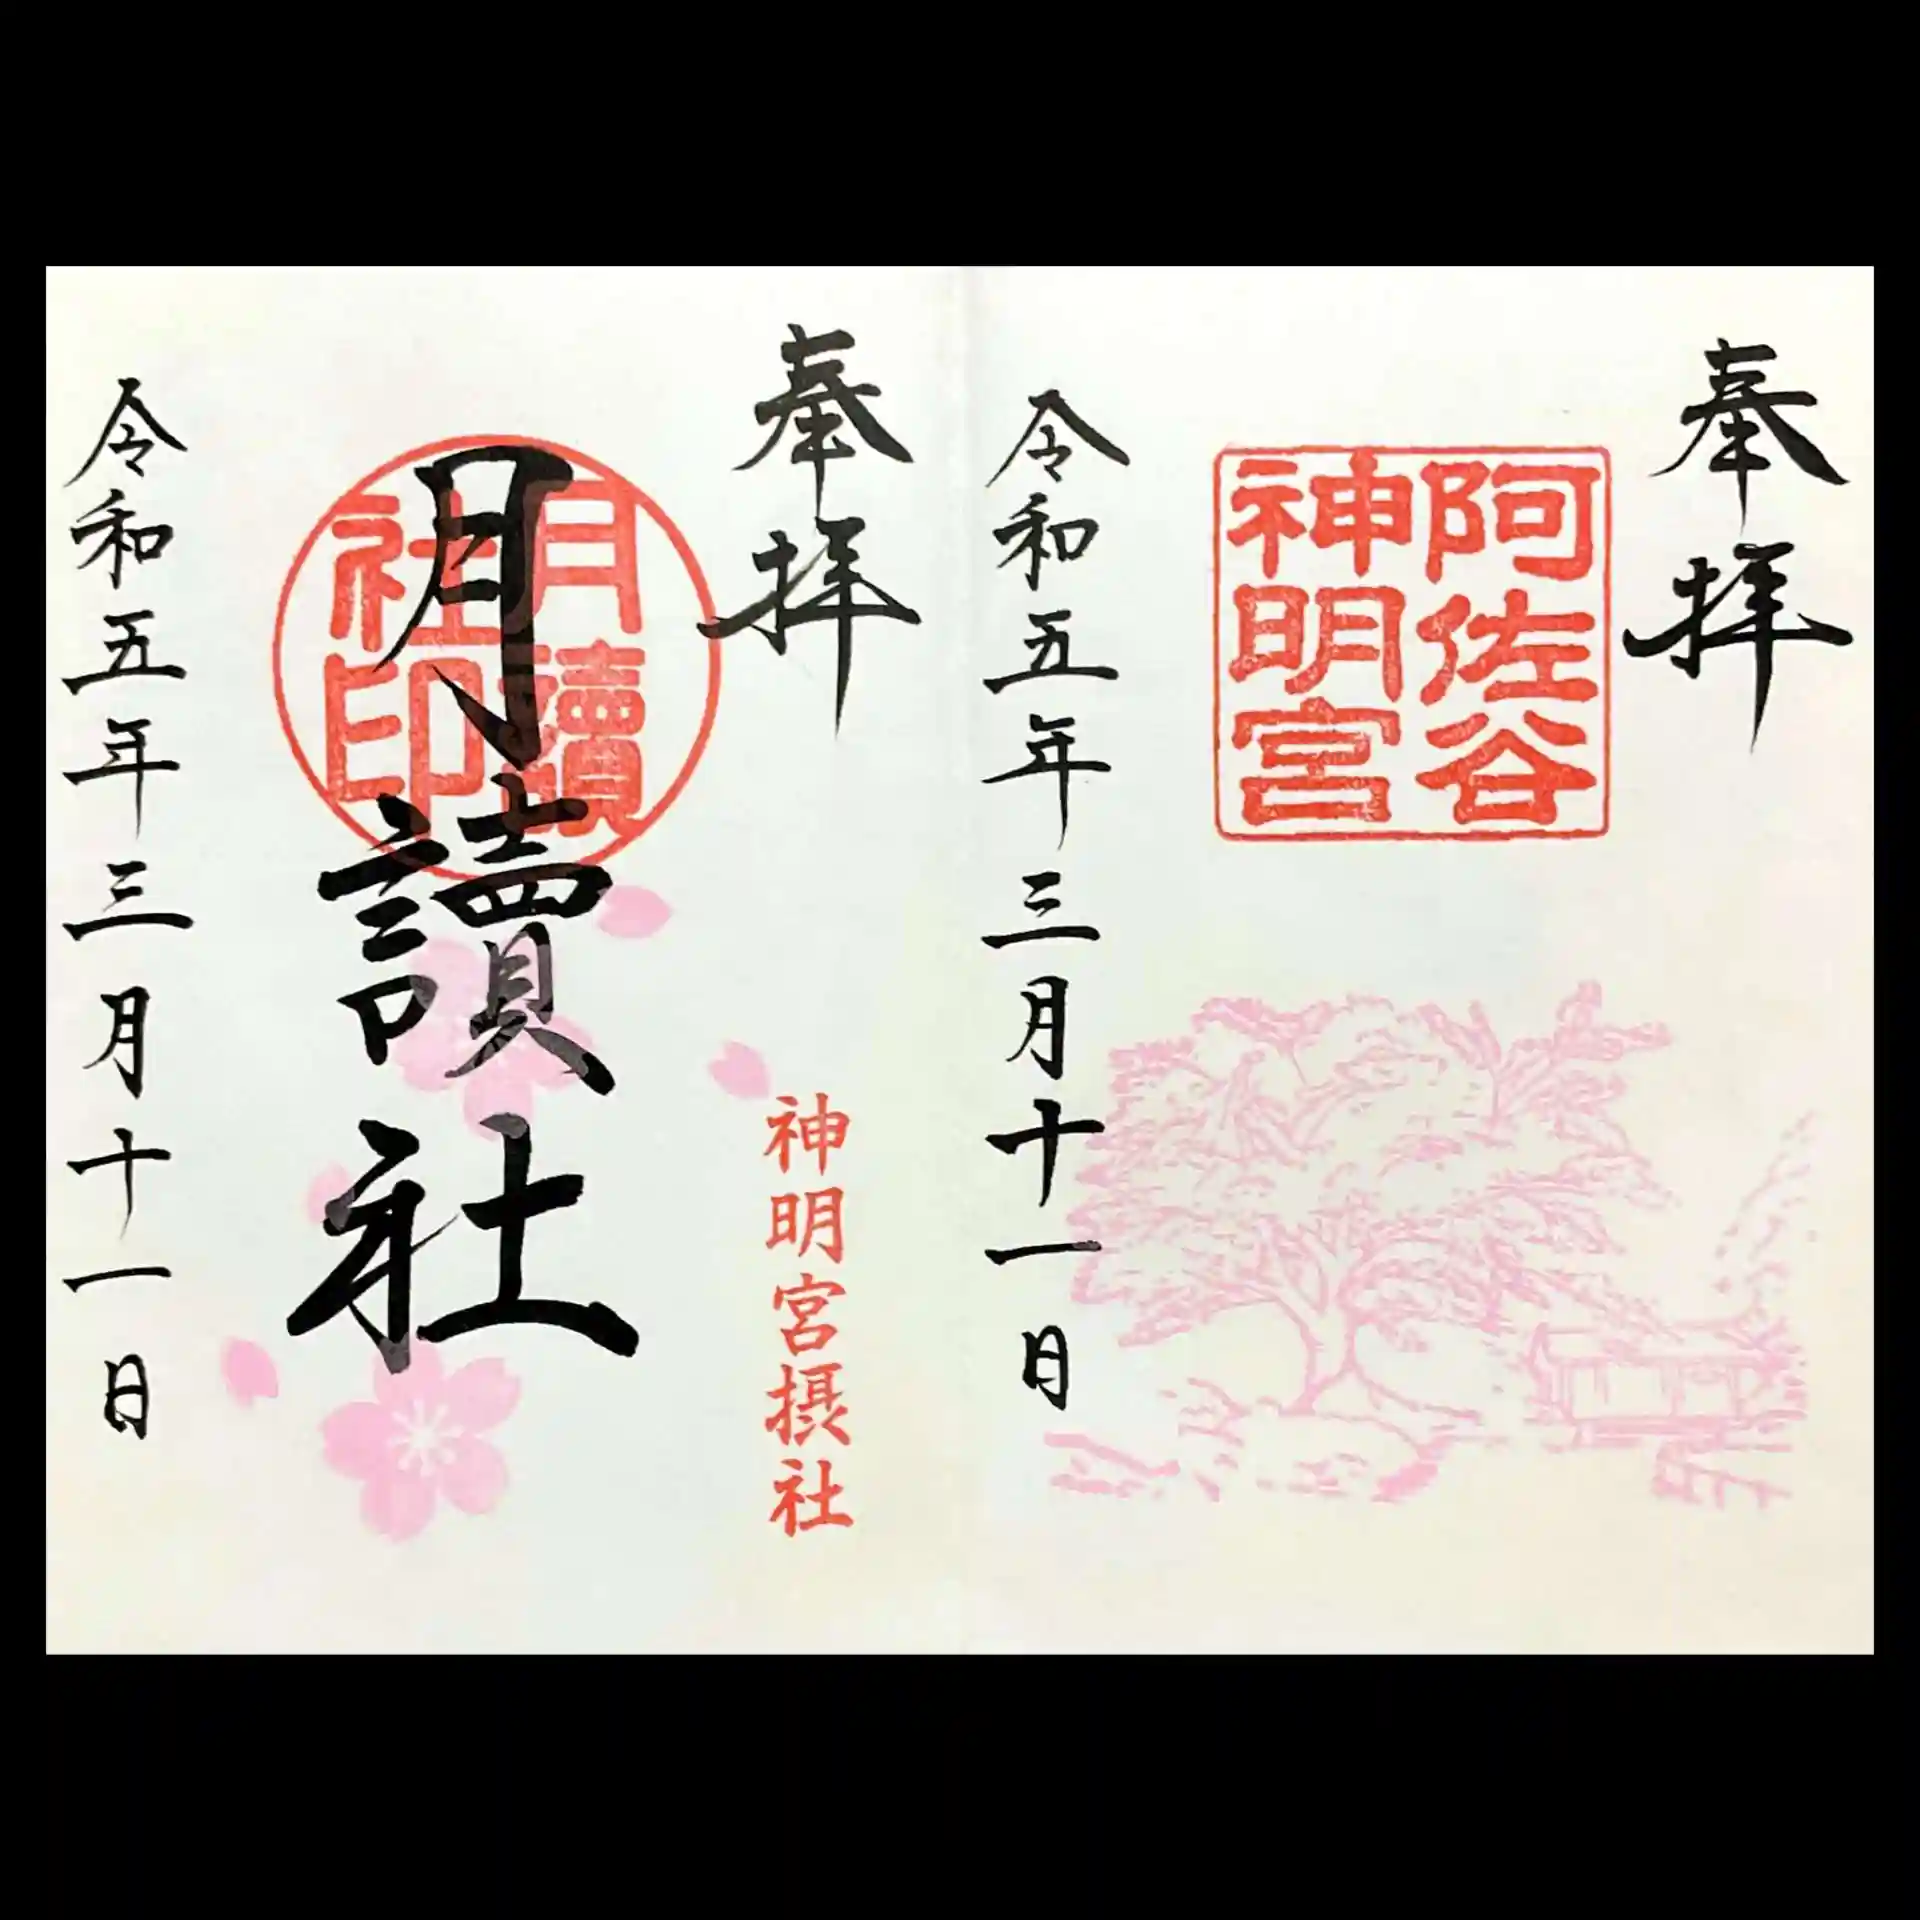 奉拝
阿佐谷
神明宮
令和五年三月十一日
奉拝
神明宮摂社
月讀
社印
月讀社
令和五年三月十一日